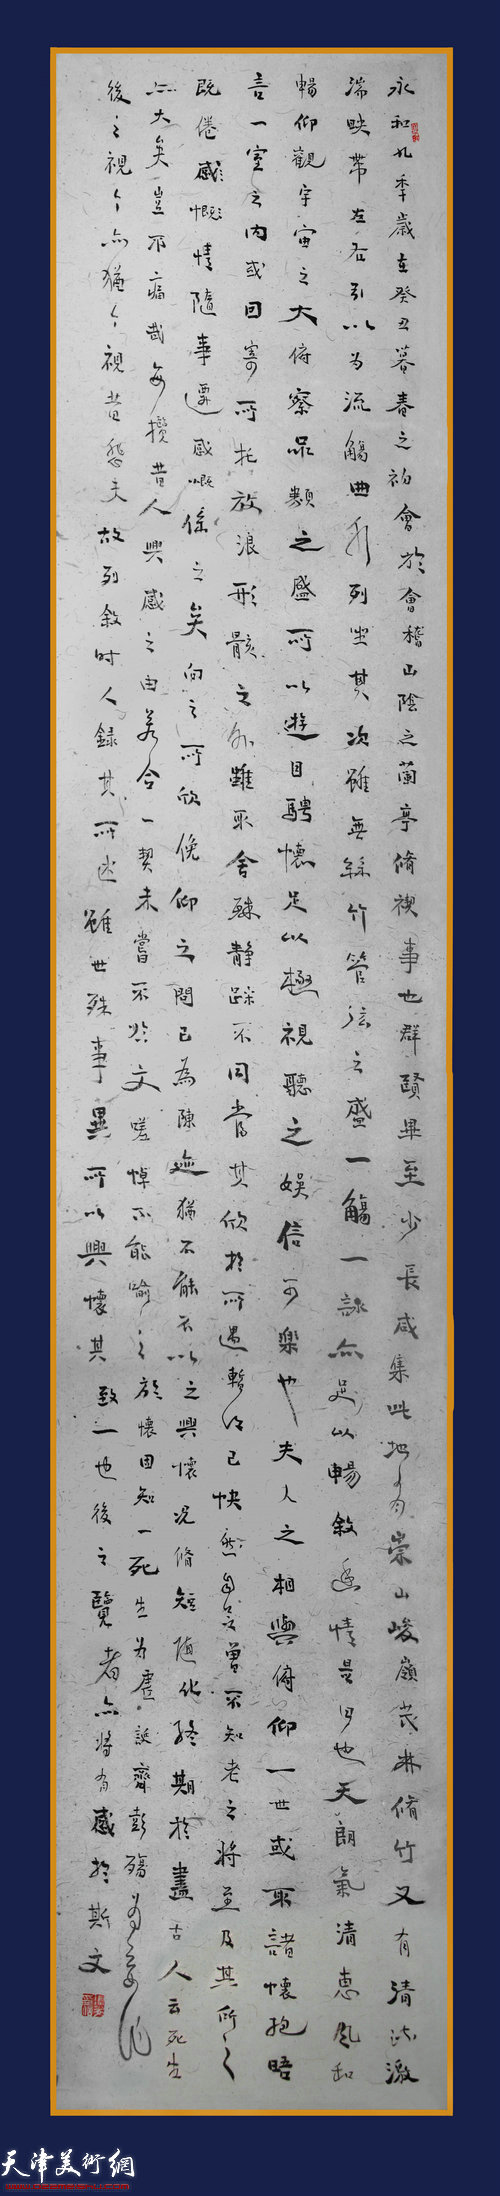 永和九年歲在癸丑暮春之初會於會稽山陰之蘭亭脩禊事也群賢畢至少長咸集此地有崇山峻嶺茂林脩竹又有清流激
湍映帶左右引以为流觴曲水列坐其次雖無絲竹管弦之盛一觴一詠亦足以暢敘幽情是日也天朗氣清惠風和
暢仰觀宇宙之大俯察品類之盛所以遊目騁懷足以極視聽之娛信可樂也夫人之相與俯仰一世或取諸懷抱晤
言一室之内或因寄所托放浪形骸之外雖取舍殊靜躁不同當其欣於所遇暫得已快然自足曾不知老之將至及其所之
既倦感慨情隨事遷感慨係之矣向之所欣俛仰之間已為陳迹猶不能不以之興懷況脩短隨化終期於盡古人云死生
亦大矣豈不痛哉每攬昔人興感之由若合一契未嘗不於文嗟悼不能喻之於懷固知一死生为虛誕齊彭殤为妄作
後之視今亦猶今視昔悲夫故列敘時人録其所述雖世殊事異所以興懷其致一也後之覽者亦將有感於斯文
天津美術網